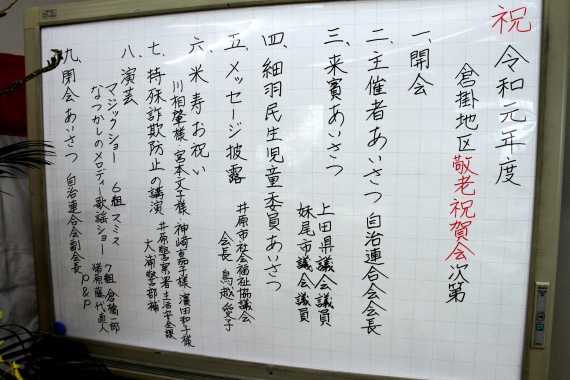 祝 令和元年度
倉掛地区敬老祝賀会次第
一、開会
二、主催者あいさつ 自治連合会会長
三、来賓あいさつ
上田県議会議員
妹尾市議会議員
四、細羽民生児童委員あいさつ
五、メッセージ披露
井原市社会福祉協議会
会長 鳥越愛子
六、米寿お祝い
川相肇様・宮本文子様・神崎嘉子様・濱田和子様
七、特殊詐欺防止の講演
井原警察署生活安全課
大浦警部補
八、演芸
マジックショー 6組 スミス 7組 倉橋一郎
なつかしのメロディー歌謡ショー 猪原藤代直人 P&P
九、閉会あいさつ 自治連合会副会長